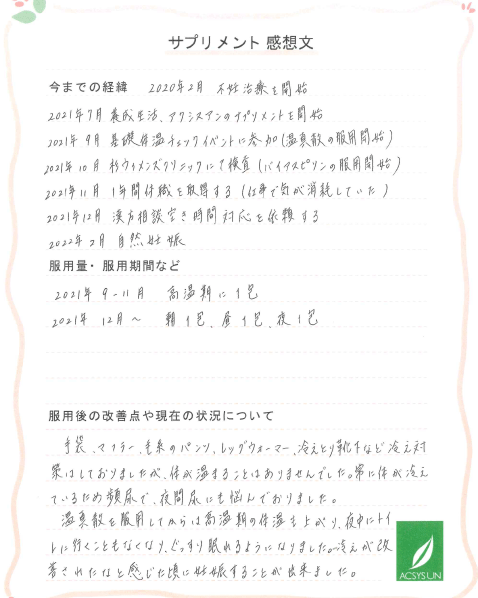 サプリメント 感想文
今までの経緯 2020年2月 不妊治療を開始
2021年7月 養成生活、アクシスアンのサプリメントを開始
2021年 9月 基礎体温チェックイベントに参加(温真散の服用開始)
2021年 10月 杉ウィメンズクリニックにて検査(バイアスピリンの服用開始)
2021年11月 1年間休職を取得する(仕事で気が消耗していた)
2021年12月 漢方相談空き時間対応を依頼する
2022年 2月 自然妊娠
服用量・服用期間など
2021年 9-11月 高温期に1包
2021年 12月~ 朝1包、昼1包、夜1包
服用後の改善点や現在の状況について
手袋、マフラー、毛糸のパンツ、レッグウォーマー、冷えとり靴下など冷え対
策はしておりましたが、体が温まることはありませんでした。常に体が冷え
ているため頻尿で、夜間尿にも悩んでおりました。
温真散を服用してからは高温期の体温も上がり、夜中にトイ
レに行くこともなくなり、ぐっすり眠れるようになりました。冷えが改
善されたなと感じた頃に妊娠することが出来ました。
ACSYSUN